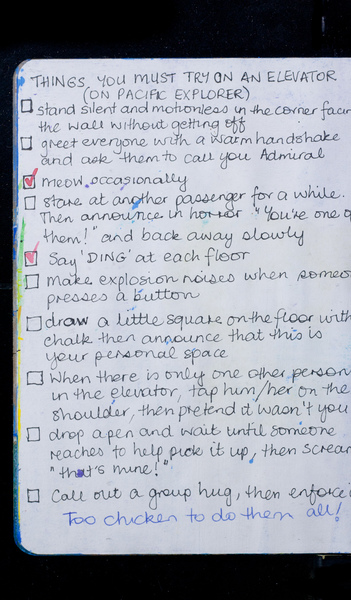 THINGS YOU MUST TRY ON AN ELEVATOR
(ON PACIFIC EXPLORER)
stand silent and motionless in the corner facin
the wall without getting off
greet everyone with a warm handshake
and ask them to call you Admiral
meow occasionally
stare at another passenger for a while.
Then announce in horror "You're one o
them!" and back away slowly
Say 'DING' at each floor
make explosion noises when someo
presses a button
draw a little square on the floor with
chalk then announce that this is
your personal space
When there is only one other person
in the elevator, tap him/her on the
shoulder, then pretend it wasn't you
drop a pen and wait until someone
reaches to help pick it up, then scream
"that's mine!"
Call out a group hug, then enforce i
Too chicken to do them all!